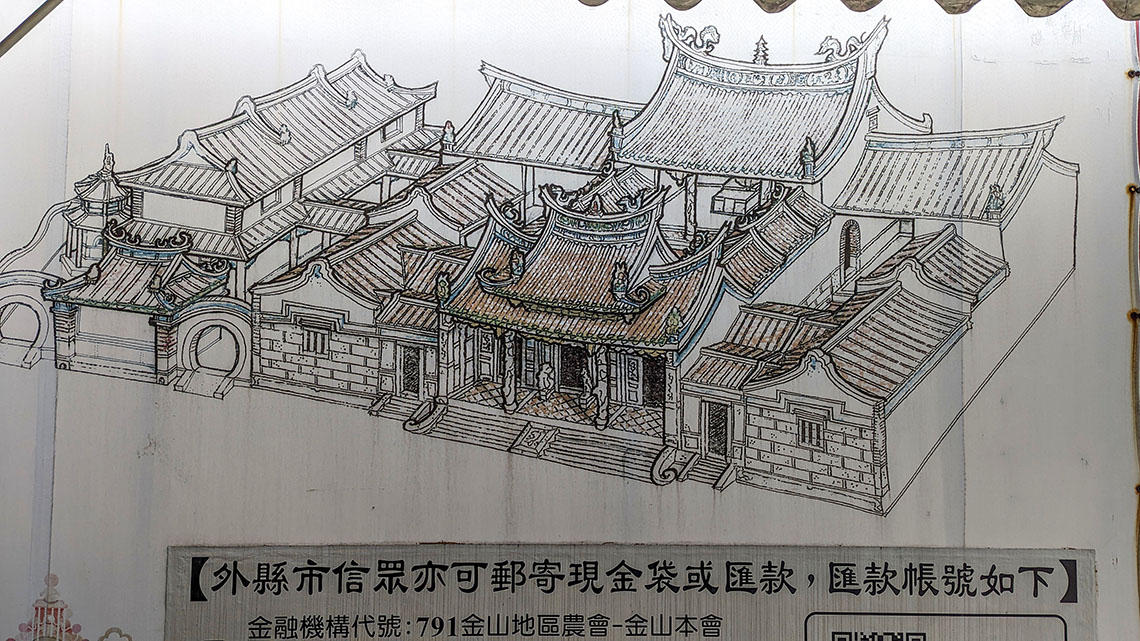 【外縣市信眾亦可郵寄現金袋或匯款，匯款帳號如下】
金融機構代號：791金山地區農會-金山本會